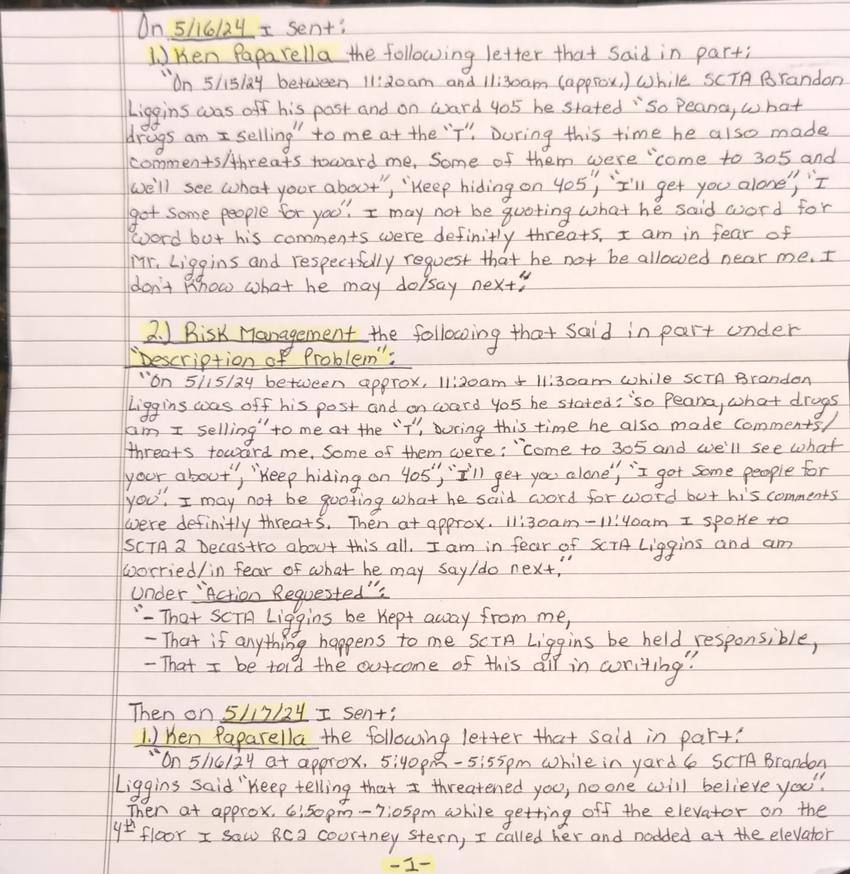 On 5/16/24 I sent:
1.) Ken Paparella the following letter that said in part;
"On 5/15/24 between 11:20am and 11:30am (approx.) while SCTA Brandon
Liggins was off his post and on ward 405 he stated "So Peana, what
drugs am I selling" to me at the "T". During this time he also made
comments/threats toward me. Some of them were "come to 305 and
we'll see what your about", "Keep hiding on 405", "I'll get you alone", "I
got some people for you". I may not be quoting what he said word for
word but his comments were definitly threats. I am in fear of
Mr. Liggins and respectfully request that he not be allowed near me. I
don't know what he may do/say next."
2.) Risk Management the following that said in part under
"Description of Problem":
"On 5/15/24 between approx. 11:20am + 11:30am while SCTA Brandon
Liggins was off his post and on ward 405 he stated: "so Peana, what drugs
am I selling" to me at the "T". During this time he also made comments/
threats toward me. Some of them were: "Come to 305 and we'll see what
your about", "Keep hiding on 405", "I'll get you alone", "I got some people for
you". I may not be quoting what he said word for word but his comments
were definitly threats. Then at approx. 11:30am-11:40am I spoke to
SCTA 2 Decastro about this all. I am in fear of SCTA Liggins and am
worried/in fear of what he may say/do next."
Under "Action Requested":
"- That SCTA Liggins be kept away from me,
- That if anything happens to me SCTA Liggins be held responsible,
- That I be told the outcome of this all in writing".
Then on 5/17/24 I sent:
1.) Ken Paparella the following letter that said in part:
"On 5/16/24 at approx. 5:40pm-5:55pm while in yard 6 SCTA Brandon
Liggins said "Keep telling that I threatened you, no one will believe you".
Then at approx. 6:50pm-7:05pm while getting off the elevator on the
4th floor I saw RC2 Courtney Stern, I called her and nodded at the elevator
-1-